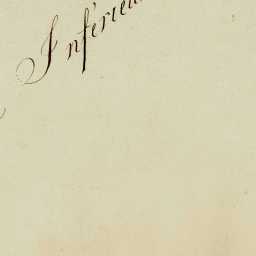 Inférieu